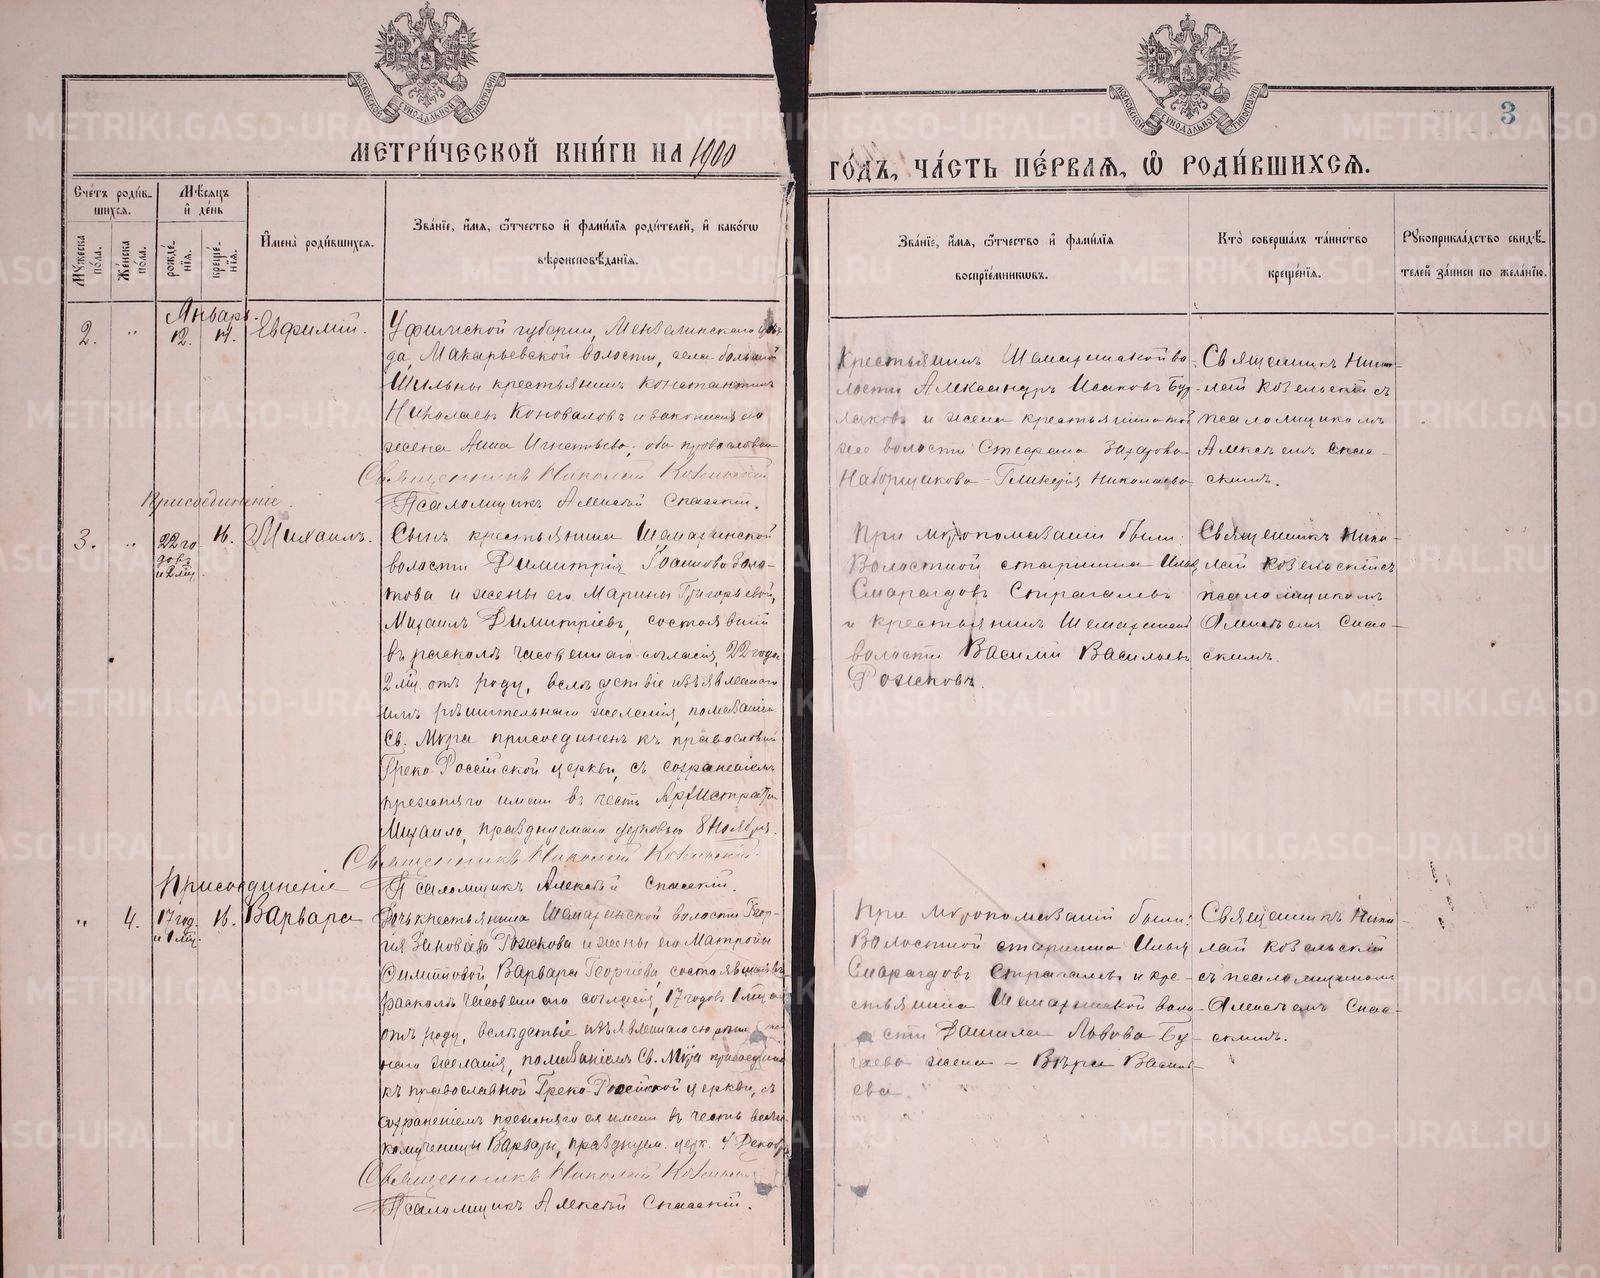 МЕТРИ́ЧЕСКОЙ КНИ́ГИ НА 1900
ГО́ДЪ, ЧА́СТЬ ПЕ́РВАЯ, Ѽ РОДИ́ВШИХСЯ.
3
Сче́тъ роди́в-
шихся.
Мѣ́сяцъ
и҆ де́нь
Мꙋ́жеска по́ла.
Же́нска по́ла.
рожде́-
нїя.
креще́-
нїя.
И҆мена̀ роди́вшихся.
Зва́нїе, и҆́мя, ѻ҆́тчество и҆ фами́лїя роди́телей, и҆ како́гѡ
вѣроисповѣ́данїя.
Зва́нїе, и҆́мя, ѻ҆́тчество и҆ фами́лїя
воспрїе́мниковъ.
Кто̀ соверша́лъ та́инство
креще́нїя.
Рꙋкоприкла́дство свидѣ́-
телей за́писи по жела́нїю.
Январь.
2. " 12. 17. Евфимій.
Уфимской губерніи, Мензелинскаго уѣз-
да, Макарьевской волости, села большой
Шильны крестьянинъ Константинъ
Николаевъ Коноваловъ и законная его
жена Анна Игнатьева; оба православн
Священникъ Николай Козельскій
Псаломщикъ Алексѣй Спасскій.
Крестьянинъ Шемахинской во-
лости Александръ Исаковъ Бу-
лаковъ и жена крестьянина той
же волости Стефана Захарова
Наборщикова - Гликерія Николаева
Священникъ Нико-
лай Козельскій съ
псаломщикомъ
Алексѣемъ Спас-
скимъ.
Присоединеніе.
3. " 22 го-
довъ
и 2 мц. 16. Михаилъ.
Сынъ крестьянина Шемахинской
волости Димитрія Іоаннова Золо-
това и жены его Марины Григорьевой,
Михаилъ Димитріевъ, состоявшій
въ расколѣ часовеннаго согласія, 22 года
2 мц. отъ роду, вслѣдствіе изъявленнаго
имъ рѣшительнаго желанія, помазаніемъ
Св. Мѵра присоединенъ къ православной
Греко-Россійской церкви, съ сохраненіемъ
прежняго имени въ честь Архистратига
Михаила, празднуемаго церковью 8 Ноября.
Священникъ Николай Козельскій.
Псаломщикъ Алексѣй Спасскій.
При мѵропомазаніи были:
Волостной старшина Илья
Смарагдовъ Страгалевъ
и крестьянинъ Шемахинской
волости Василій Васильевъ
Рожковъ.
Священникъ Нико-
лай Козельскій съ
псаломщикомъ
Алексѣемъ Спас-
скимъ.
Присоединеніе
" 4. 17 год.
и 1 мц. 16. Варвара
Дочь крестьянина Шемахинской волости Геор-
гія Зиновіева Рожкова и жены его Матроны
Филипповой, Варвара Георгіева, состоявшая въ
расколѣ часовеннаго согласія, 17 годовъ 1 мцъ
отъ роду, вслѣдствіе изъявленнаго ею рѣшитель-
наго желанія, помазаніемъ Св. Мѵра присоединена
къ православной Греко-Россійской церкви, съ
сохраненіемъ прежняго ея имени въ честь Вели-
комученицы Варвары, празднуем. церк. 4 Декабря
Священникъ Николай Козельскій
Псаломщикъ Алексѣй Спасскій.
При мѵропомазаніи были:
Волостной старшина Илья
Смарагдовъ Страгалевъ и кре-
стьянина Шемахинской воло-
сти Даниила Львова Бу-
гаева жена - Вѣра Василь-
ева.
Священникъ Нико-
лай Козельскій
съ псаломщикомъ
Алексѣемъ Спас-
скимъ.
METRIKI.GASO-URAL.RU